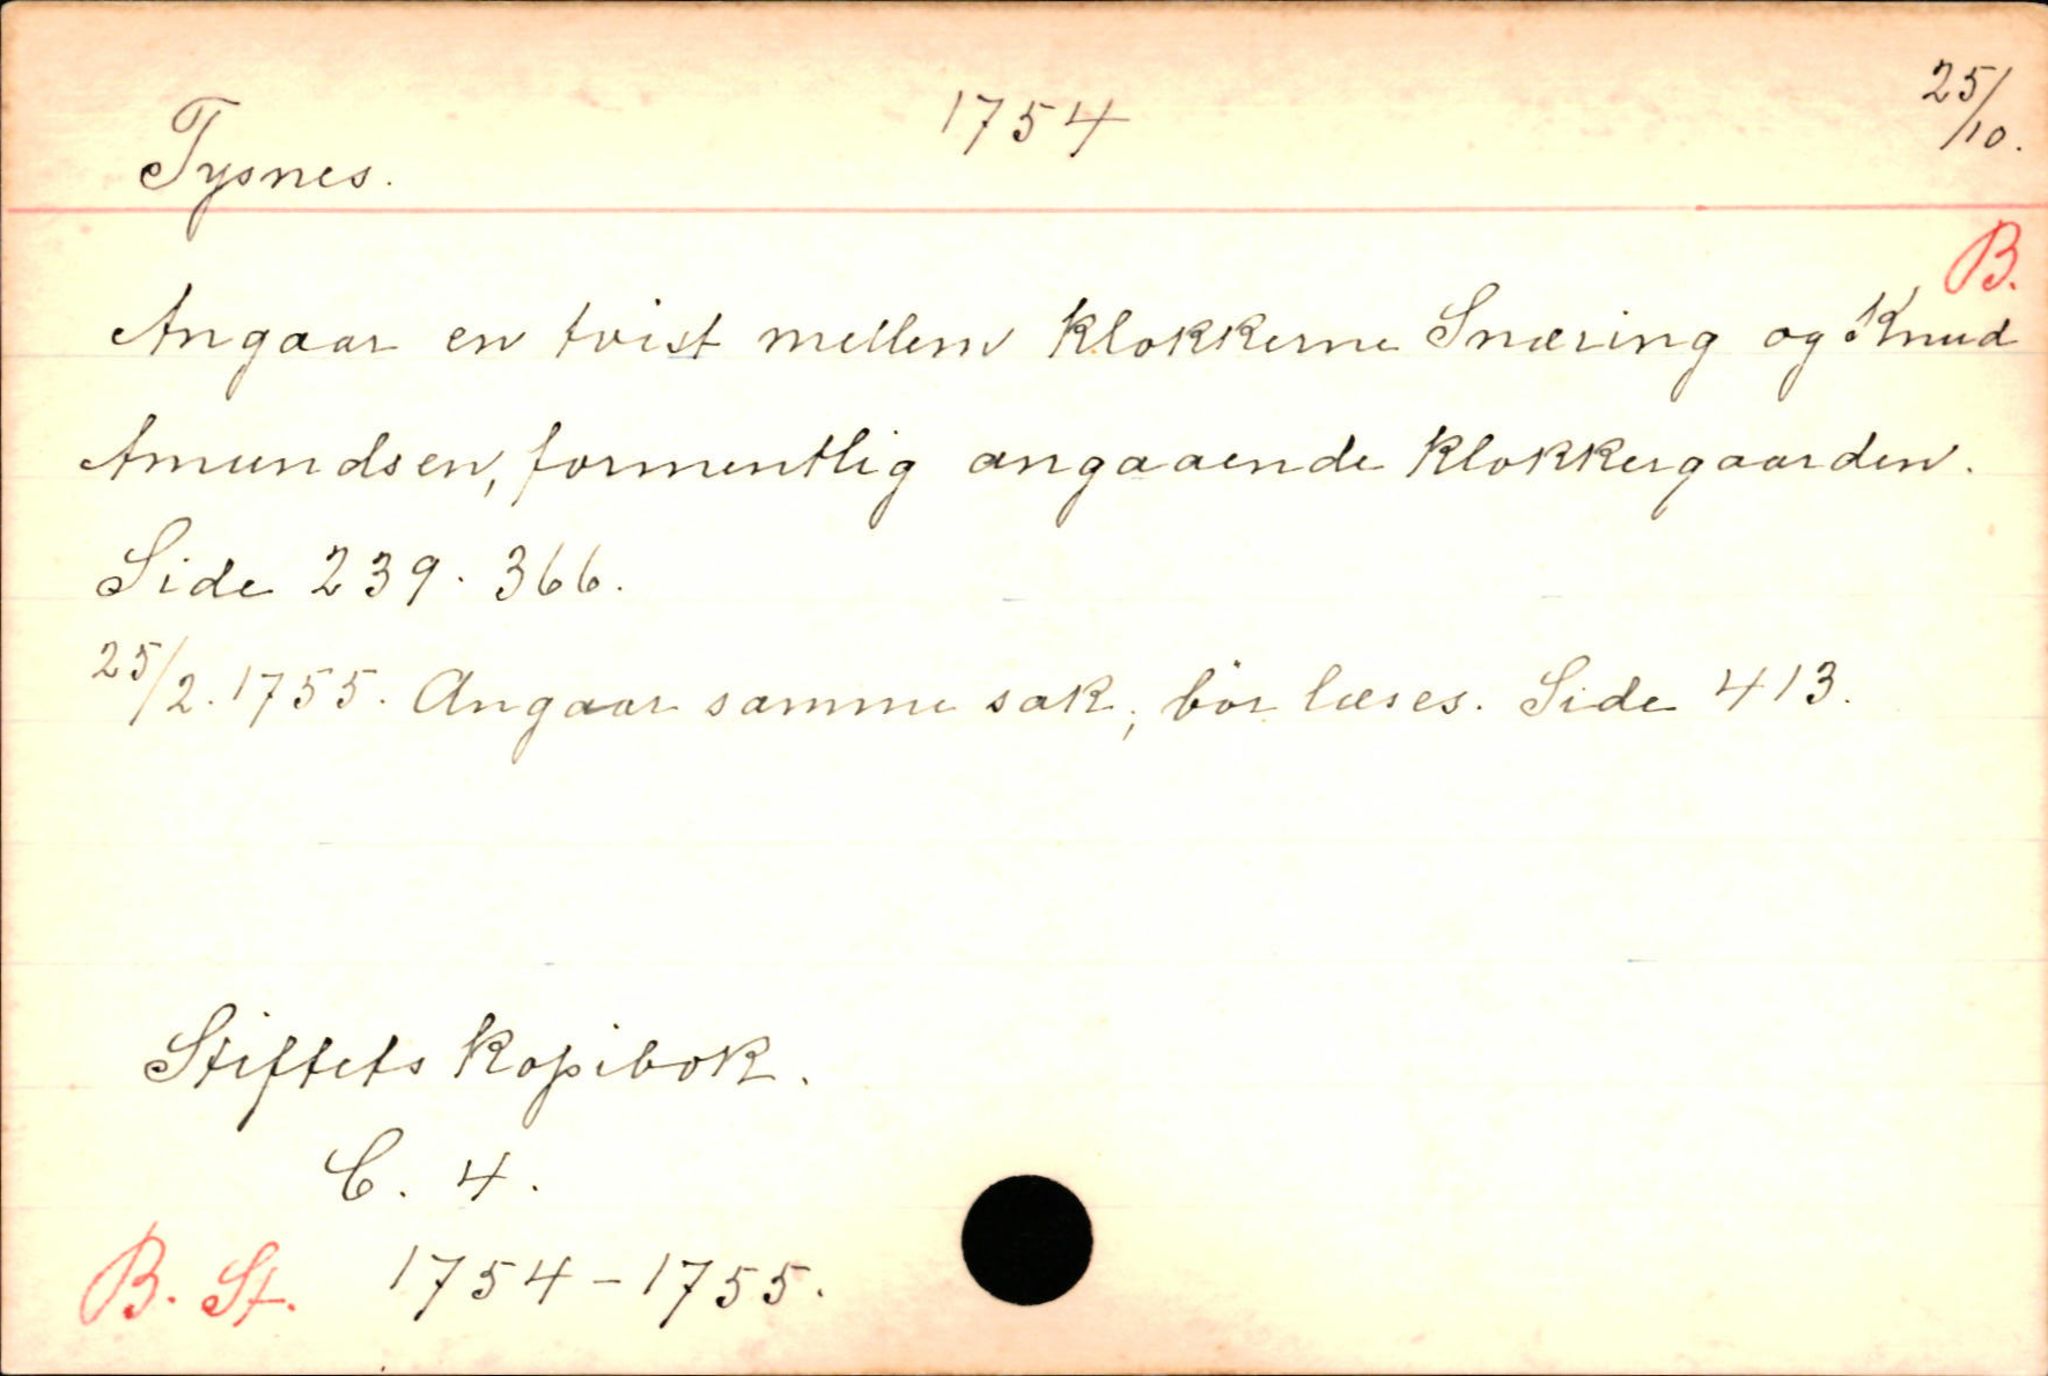 Tysnes. 1754 25/10.
B.
Angaar en tvist mellem klokkerne Snæring og Knud
Amundsen, formentlig angaaende klokkergaarden.
Side 239. 366.
25/2. 1755. Angaar samme sak, bör læses. Side 413.
Stiftets kopibok.
C. 4.
B. St. 1754-1755.